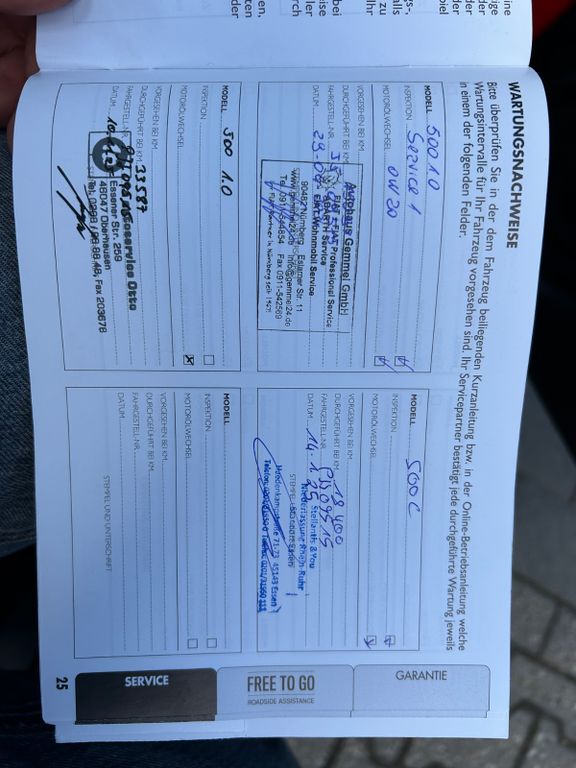 WARTUNGSNACHWEISE
Bitte überprüfen Sie in der dem Fahrzeug beiliegenden Kurzanleitung bzw. in der Online-Betriebsanleitung welche
Wartungsintervalle für Ihr Fahrzeug vorgesehen sind. Ihr Servicepartner bestätigt jede durchgeführte Wartung jeweils
in einem der folgenden Felder.
MODELL 500 1.0
INSPEKTION Service 1
MOTORÖLWECHSEL 0W20
VORGESEHEN BEI KM
DURCHGEFÜHRT BEI KM
FAHRGESTELL-NR.
DATUM
Autohaus Gemmel GmbH
FIAT + FIAT Professional Service
ABARTH Service
FIAT Wohnmobil Service
90482 Nürnberg Eslarner Str. 11
www.gemmel24.de info@gemmel24.de
Tel. 0911-544454 Fax 0911-542569
MODELL 500C
INSPEKTION
MOTORÖLWECHSEL
VORGESEHEN BEI KM
DURCHGEFÜHRT BEI KM 18400
FAHRGESTELL-NR. PJ09515
DATUM 14.1.25
Stellantis &You
Niederlassung Rhein-Ruhr
STEMPEL UND UNTERSCHRIFT
45143 Essen
MODELL 500 1.0
INSPEKTION
MOTORÖLWECHSEL
VORGESEHEN BEI KM
DURCHGEFÜHRT BEI KM 33587
FAHRGESTELL-NR.
DATUM
Autoservice Otto
Essener Str. 259
46047 Oberhausen
MODELL
INSPEKTION
MOTORÖLWECHSEL
VORGESEHEN BEI KM
DURCHGEFÜHRT BEI KM
FAHRGESTELL-NR.
DATUM
STEMPEL UND UNTERSCHRIFT
GARANTIE
FREE TO GO
ROADSIDE ASSISTANCE
SERVICE
25